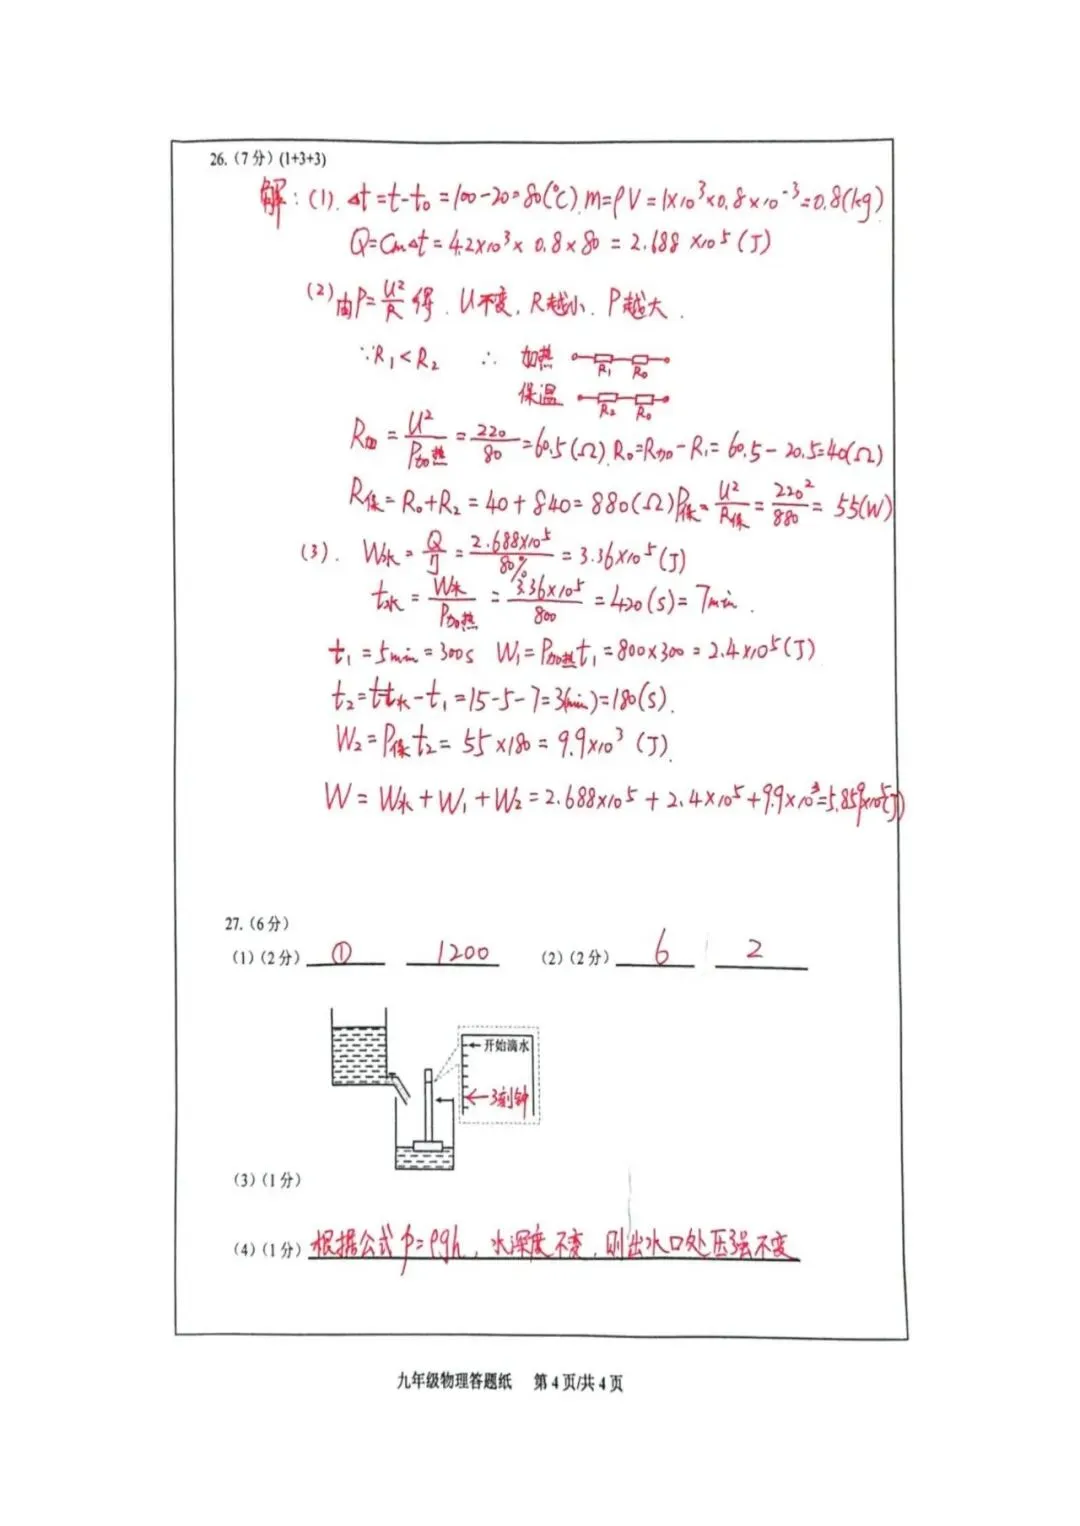 26.（7分）(1+3+3)
解：(1). Δt=t-t₀=100-20=80(℃) m=ρV=1×10³×0.8×10⁻³=0.8(kg)
Q=CmΔt=4.2×10³×0.8×80=2.688×10⁵(J)
(2)由P=U²/R得. U不变, R越小. P越大.
∵R₁<R₂ ∴ 加热 R₁ R₀
保温 R₂ R₀
R加=U²/P加热=220/80=60.5(Ω). R₀=R加-R₁=60.5-20.5=40(Ω)
R保=R₀+R₂=40+840=880(Ω) P保=U²/R保=220²/880=55(W)
(3). W水=Q/η=2.688×10⁵/80%=3.36×10⁵(J)
t水=W水/P加热=3.36×10⁵/800=420(s)=7min.
t₁=5min=300s W₁=P加热t₁=800×300=2.4×10⁵(J)
t₂=t-t水-t₁=15-5-7=3(min)=180(s).
W₂=P保t₂=55×180=9.9×10³(J).
W=W水+W₁+W₂=2.688×10⁵+2.4×10⁵+9.9×10³=5.859×10⁵(J)
27.（6分）
(1)（2分） ① 1200 (2)（2分） 6 2
开始滴水
3刻钟
(3)（1分）
(4)（1分） 根据公式p=ρgh, 水深度不变, 则出水口处压强不变
九年级物理答题纸 第4页/共4页